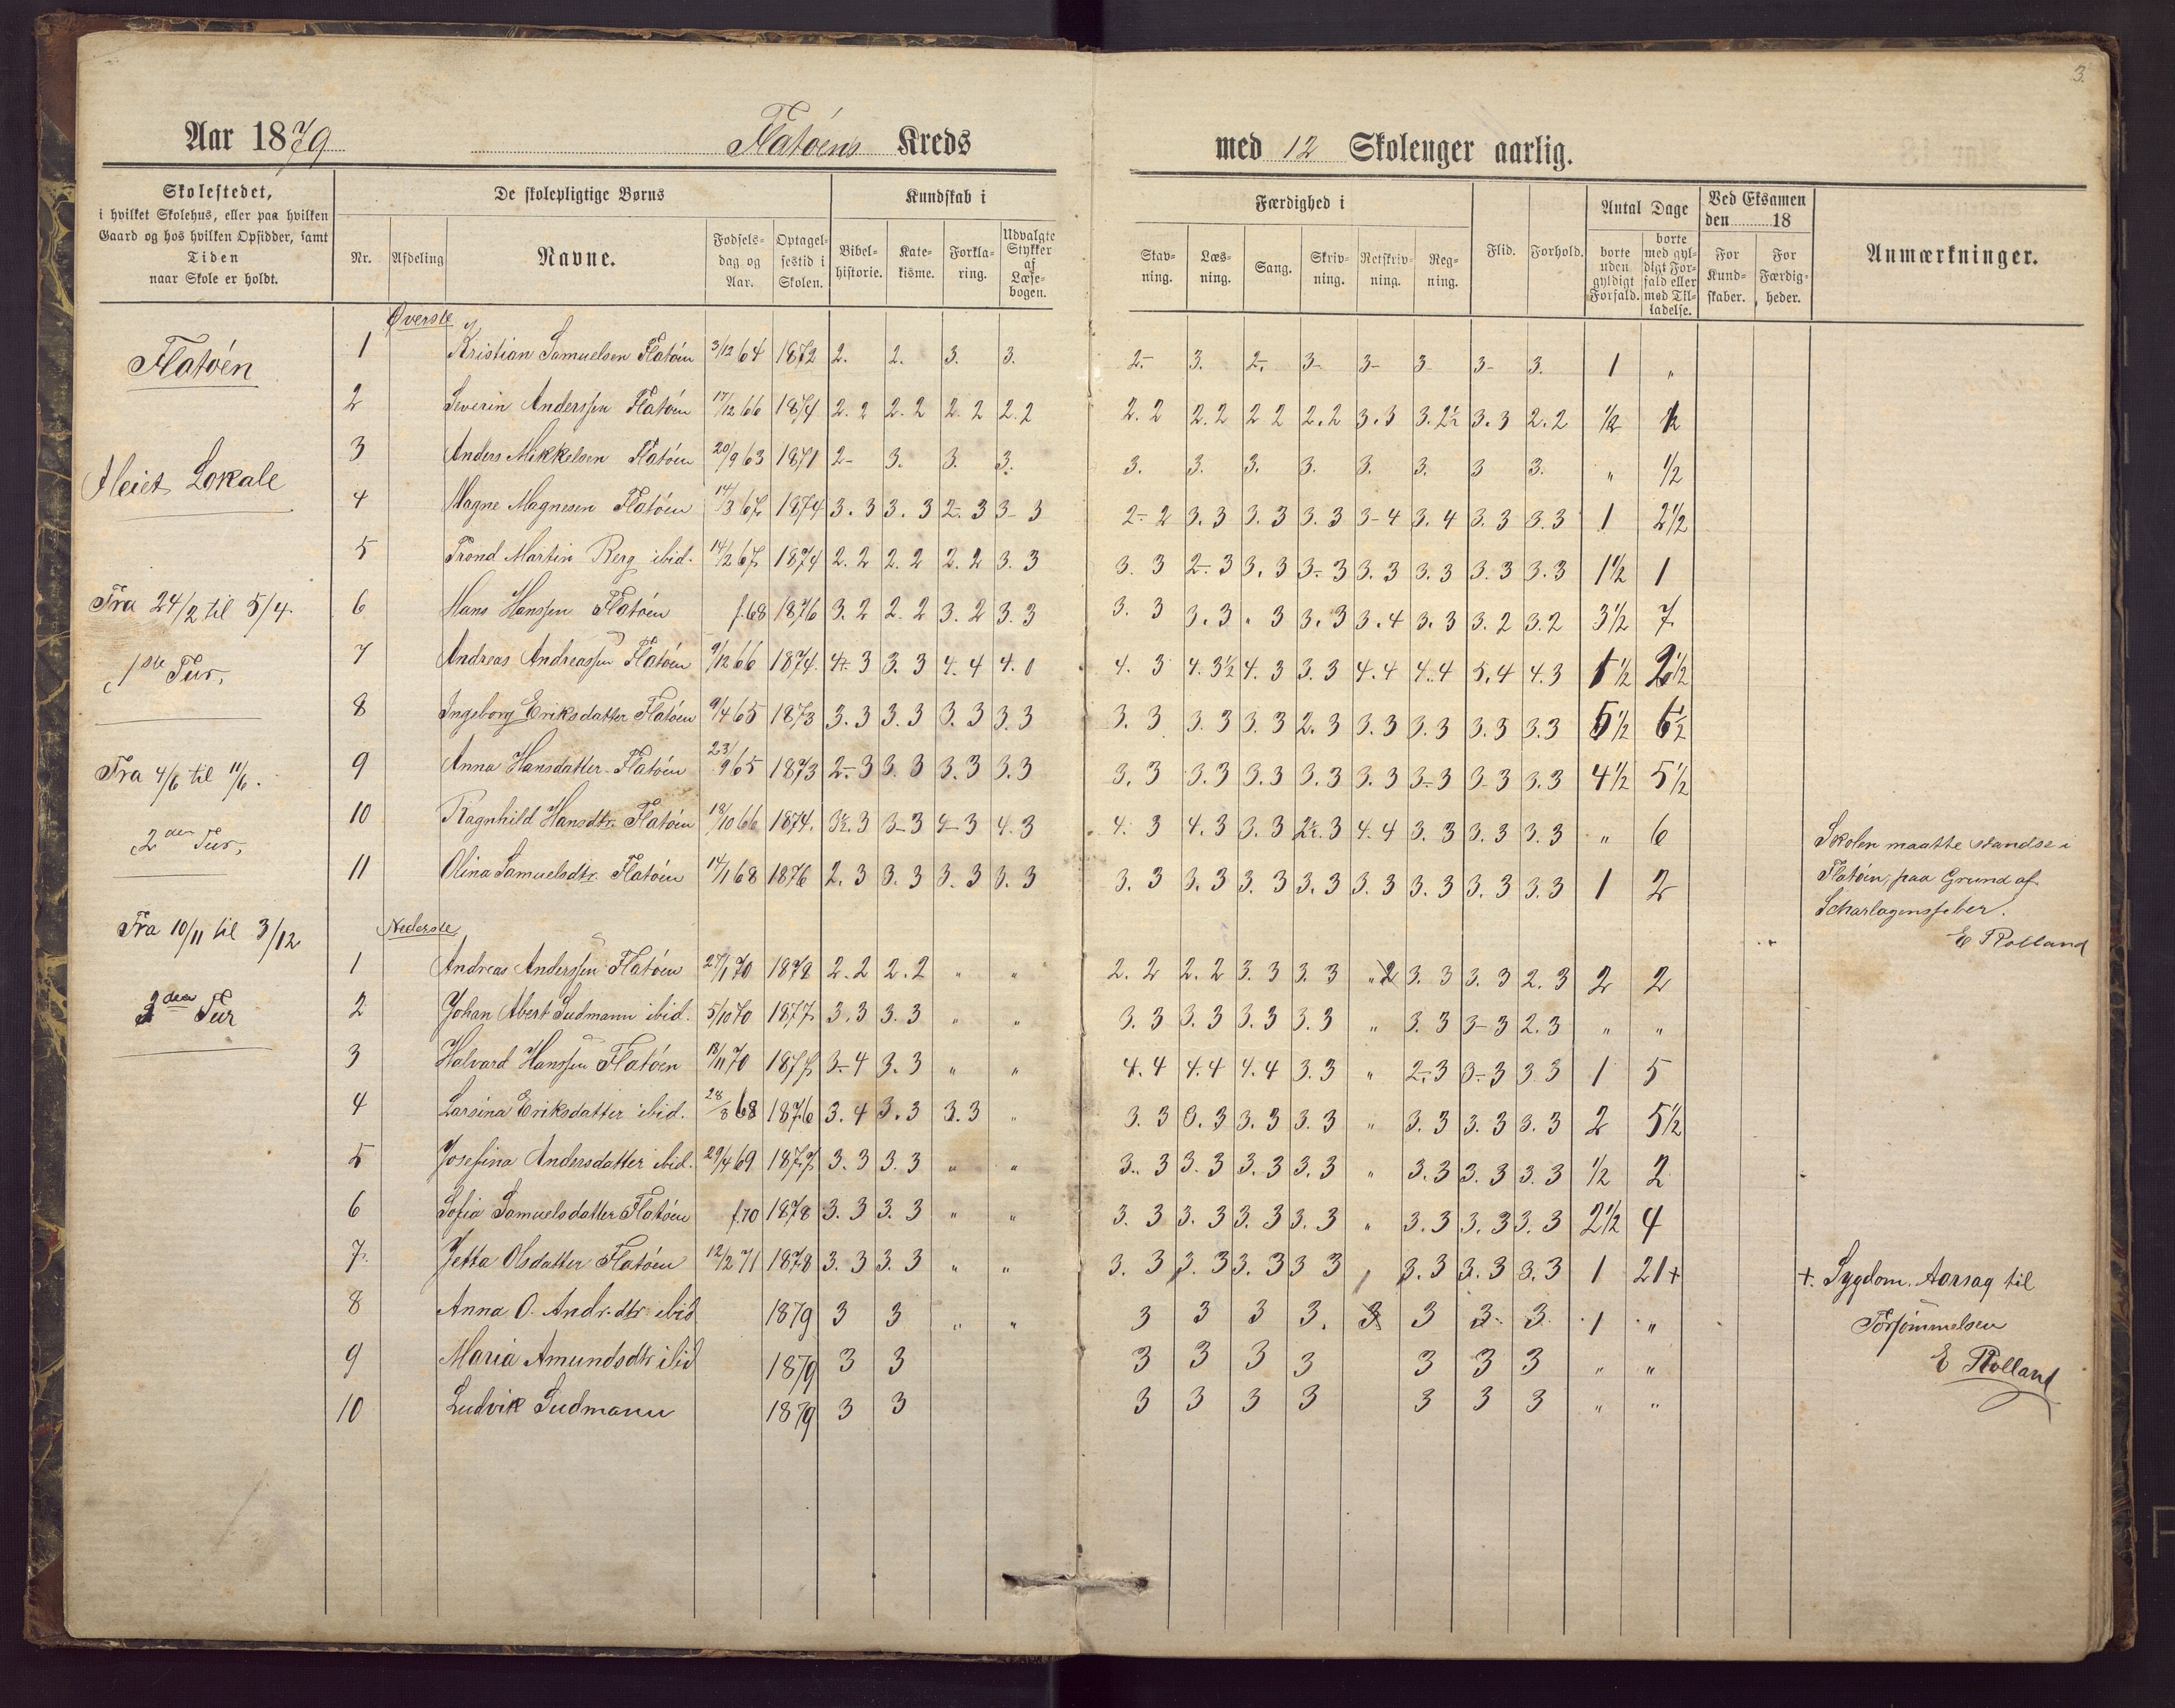 3.
Aar 1879 Flatöens Kreds med 12 Skolenger aarlig.
Skolestedet,
i hvilket Skolehus, eller paa hvilken
Gaard og hos hvilken Opsidder, samt
Tiden
naar Skole er holdt.
De skolepligtige Børns
Nr. Afdeling Navne. Fødselsdag og Aar. Optagelsestid i Skolen.
Kundskab i
Bibelhistorie. Katekisme. Forklaring. Udvalgte Stykker af Læsebogen.
Færdighed i
Stavning. Læsning. Sang. Skrivning. Retskrivning. Regning.
Flid. Forhold.
Antal Dage
borte uden gyldigt Forfald. borte med gyldigt Forfald eller med Tilladelse.
Ved Eksamen den 18
For Kundskaber. For Færdigheder.
Anmærkninger.
Flatöen
Leiet Lokale
Fra 24/2 til 5/4.
1ste Tur,
Fra 4/6 til 11/6.
2den Tur,
Fra 10/11 til 3/12
3den Tur
Øverste
1 Kristian Samuelsen Flatöen 3/12 64 1872 2. 2. 3. 3. 2- 3. 2. 3- 3- 3 3- 3. 1 "
2 Severin Anderssen Flatöen 17/12 66 1874 2.2 2.2 2.2 2.2 2.2 2.2 2 2 2.2 3.3 3.2½ 3.3 2.2 ½ ½
3 Anders Mikkelsen Flatöen 20/9 63 1871 2- 3. 3. 3. 3. 3. 3. 3. 3. 3. 3 3. " ½
4 Magne Magnesen Flatöen 14/3 67 1874 3.3 3.3 2-.3 3-3 2-2 3.3 3.3 3.3 3-4 3.4 3.3 3.3 1 2½
5 Trond Martin Berg ibid. 14/2 67 1874 2.2 2.2 2.2 3.3 3.3 2-.3 3.3 3-.3 3.3 3.3 3.3 3.3 1½ 1
6 Hans Hanssen Flatöen f.68 1876 3.2 2.2 3.2 3.3 3.3 3.3 . 3 3.3 3.4 3.3 3.2 3.2 3½ 7
7 Andreas Andreassen Flatöen 9/12 66 1874. 4.3 3.3 4.4 4.0 4.3 4.3½ 4.3 3.3 4.4 4.4 5.4 4.3 1½ 2½
8 Ingeborg Eriksdatter Flatöen 9/4 65 1873 3.3 3.3 3.3 3.3 3.3 3.3 3.3 2.3 3.3 3.3 3.3 3.3 5½ 6½
9 Anna Hansdatter Flatöen 23/9 65 1873 2-.3 3.3 3.3 3.3 3.3 3.3 3.3 3.3 3.3 3-3 3-3 3.3 4½ 5½
10 Ragnhild Hansdtr. Flatöen 18/10 66 1874. 3½.3 3-3 4-3 4.3 4.3 4.3 3.3 2½.3 4.4 3.3 3.3 3.3 " 6
11 Olina Samuelsdtr. Flatöen 14/1 68 1876 2.3 3.3 3.3 3.3 3.3 3.3 3.3 3.3 3.3 3.3 3.3 3.3 1 2
Skolen maatte standse i
Flatöen, paa Grund af
Scharlagensfeber.
E Rolland
Nederste
1 Andreas Anderssen Flatöen 27/1 70 1878 2.2 2.2 " " 2.2 2.2 3.3 3.3 " 3.3 3.3 2.3 2 2
2 Johan Abert Sudmann ibid. 5/10 70 1877 3.3 3.3 " " 3.3 3.3 3.3 3.3 " 3.3 3-3 2.3 " "
3 Halvard Hanssen Flatöen 18/11 70 1877 3-4 3.3 " " 4.4 4.4 4.4 3.3 " 2-.3 3-3 3 3 1 5
4 Larsina Eriksdatter ibid. 28/8 68 1876 3.4 3.3 3.3 " 3.3 3.3 3.3 3.3 " 3.3 3.3 3.3 2 5½
5 Josefina Andersdatter ibid. 29/4 69 1877 3.3 3.3 " " 3.3 3.3 3.3 3.3 " 3.3 3.3 3.3 ½ 2
6 Sofia Samuelsdatter Flatöen f.70 1878 3.3 3.3 " " 3.3 3.3 3.3 3.3 " 3.3 3.3 3.3 2½ 4
7. Jetta Olsdatter Flatöen 12/2 71 1878 3.3 3.3 " " 3.3 3.3 3.3 3 3 " 3.3 3.3 3.3 1 21+
8 Anna O. Andr.dtr ibid 1879 3 3 " " 3 3 3 3. 3 3 3 1 "
9 Maria Amundsdtr ibid 1879 3 3 3 3 3 3 3 3 3 " "
10 Ludvik Sudmann 1879 3 3 3 3 3 3 3 3 3 " "
+. Sygdom Aarsag til
Forsömmelsen
E Rolland